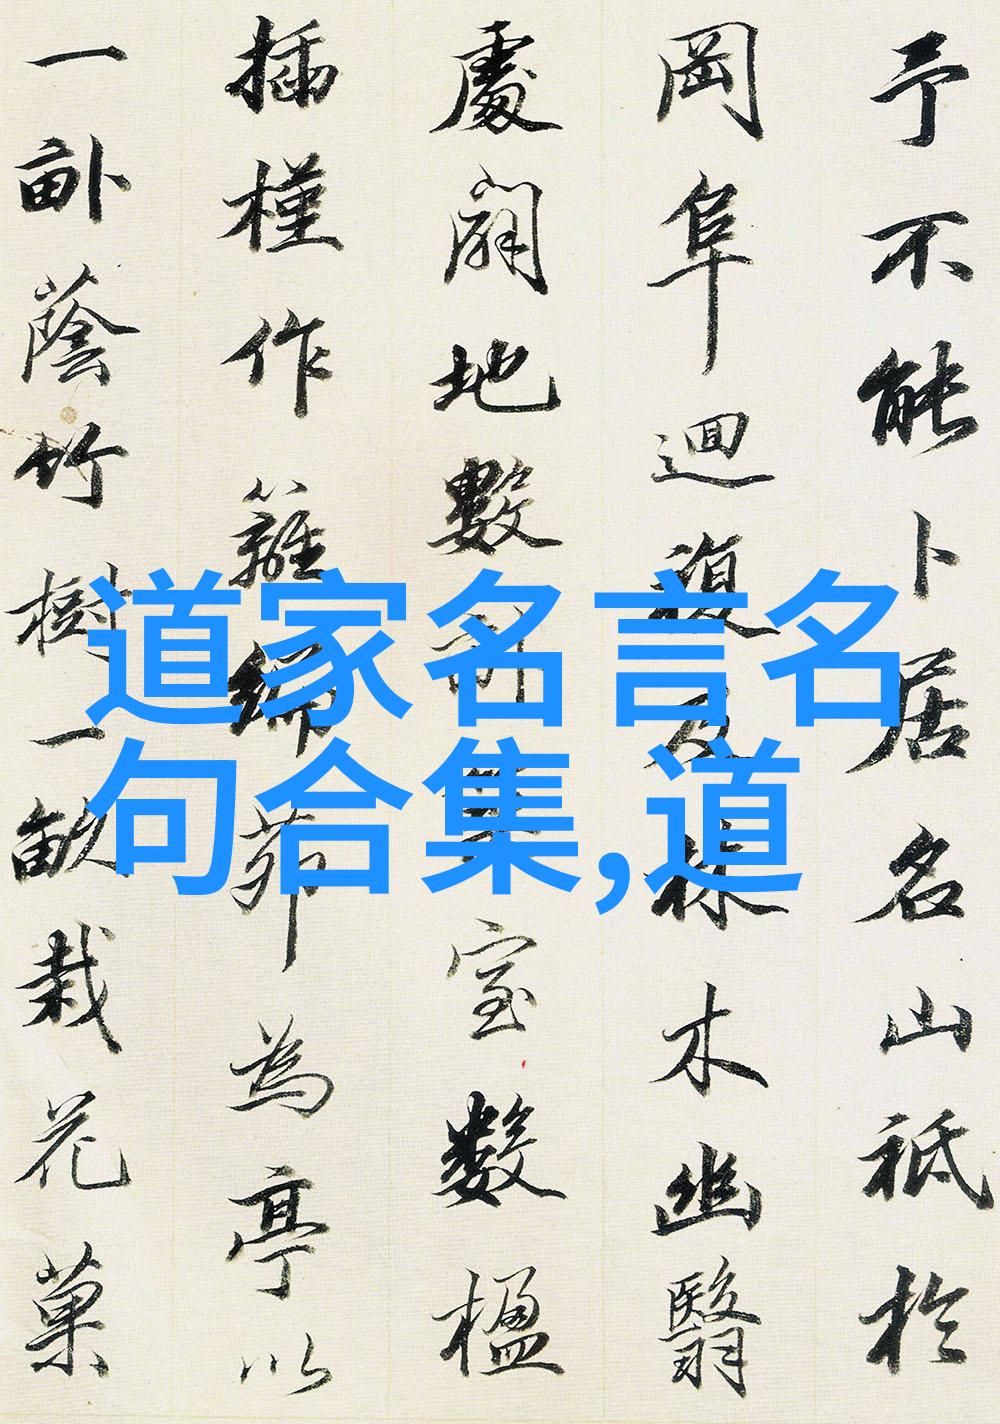 予不能卜居名山祗於
岡阜迴複及林木幽翳
處闢地數畝築室數楹
插槿作籬編茆為亭以
一畝蔭竹樹一畝栽花菓
道家名言名
句合集,道